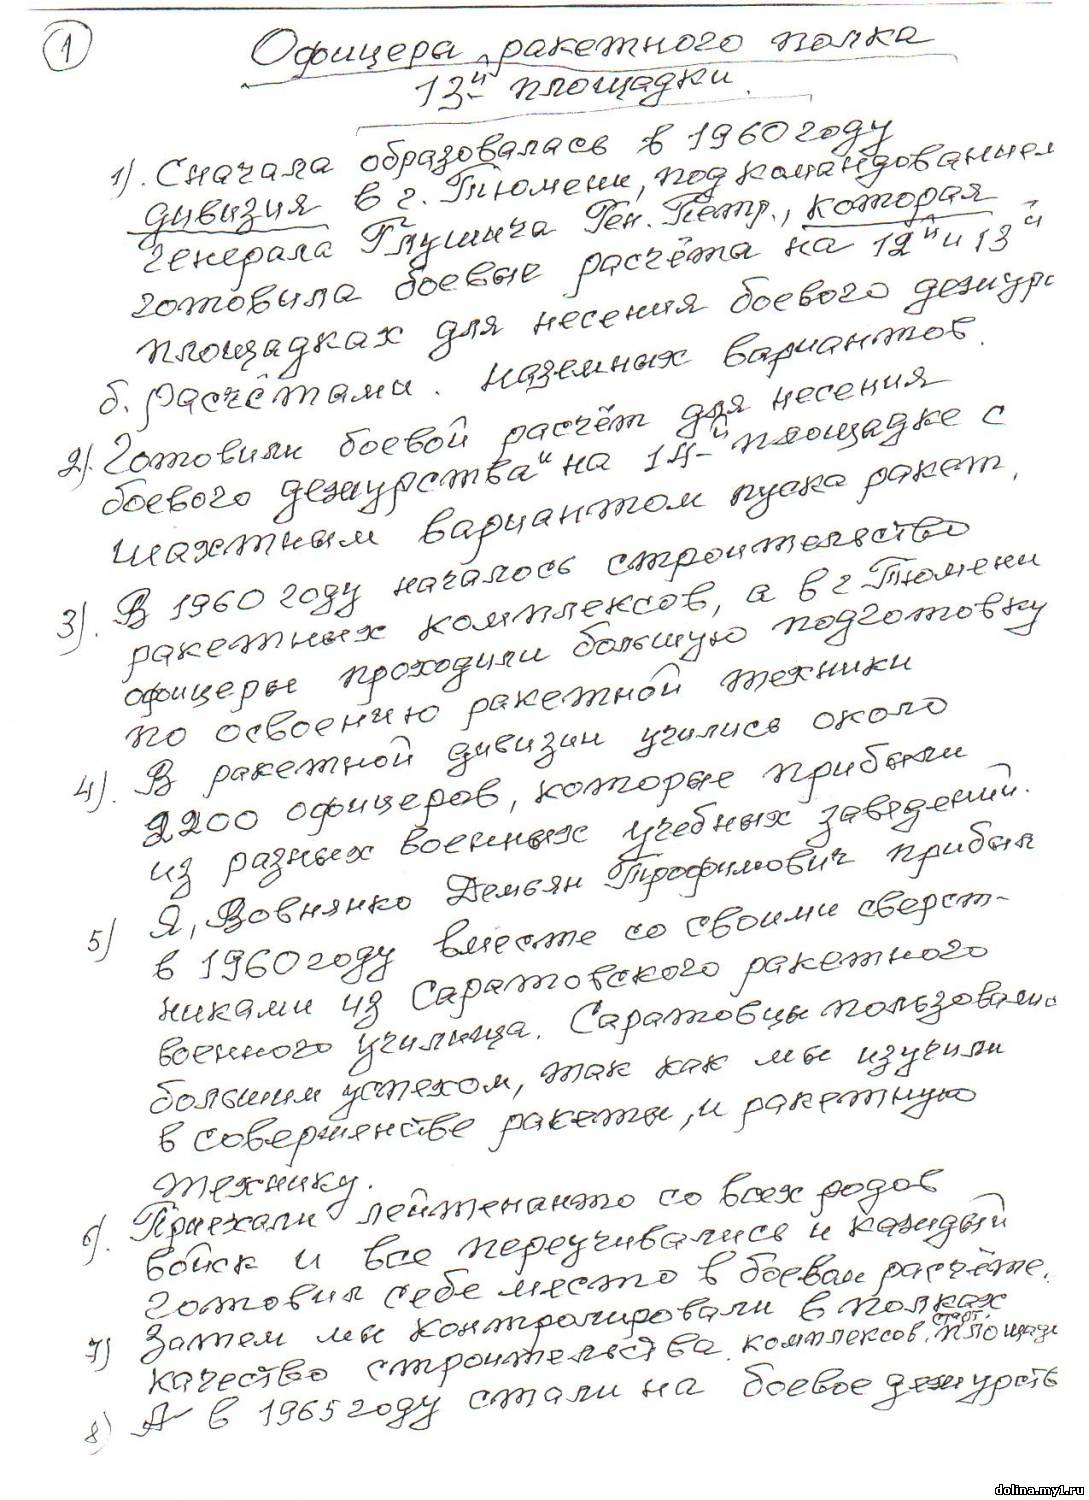 1
Офицера ракетного полка
13й площадки.
1). Сначала образовалась в 1960 году
дивизия в г. Тюмени, под командованием
генерала Глушича Ген. Петр., которая
готовила боевые расчёта на 12й и 13й
площадках для несения боевого дежурс
б. расчётами. наземных вариантов.
2). Готовили боевой расчёт для несения
боевого дежурства" на 14й площадке с
шахтным вариантом пуска ракет.
3). В 1960 году началось строительство
ракетных комплексов, а в г Тюмени
офицеры проходили большую подготовку
по освоению ракетной техники
4). В ракетной дивизии учились около
2200 офицеров, которые прибыли
из разных военных учебных заведений.
5) Я, Вовнянко Демьян Трофимович прибыл
в 1960 году вместе со своими сверст-
никами из Саратовского ракетного
военного училища. Саратовцы пользовались
большим успехом, так как мы изучили
в совершенстве ракеты, и ракетную
технику.
6). Приехали лейтенанто со всех родов
войск и все переучивались и каждый
готовил себе место в боевом расчёте.
7) Затем мы контролировали в полках
качество строительства комплексов, старт. площадк
8) А в 1965 году стали на боевое дежурств
dolina.my1.ru